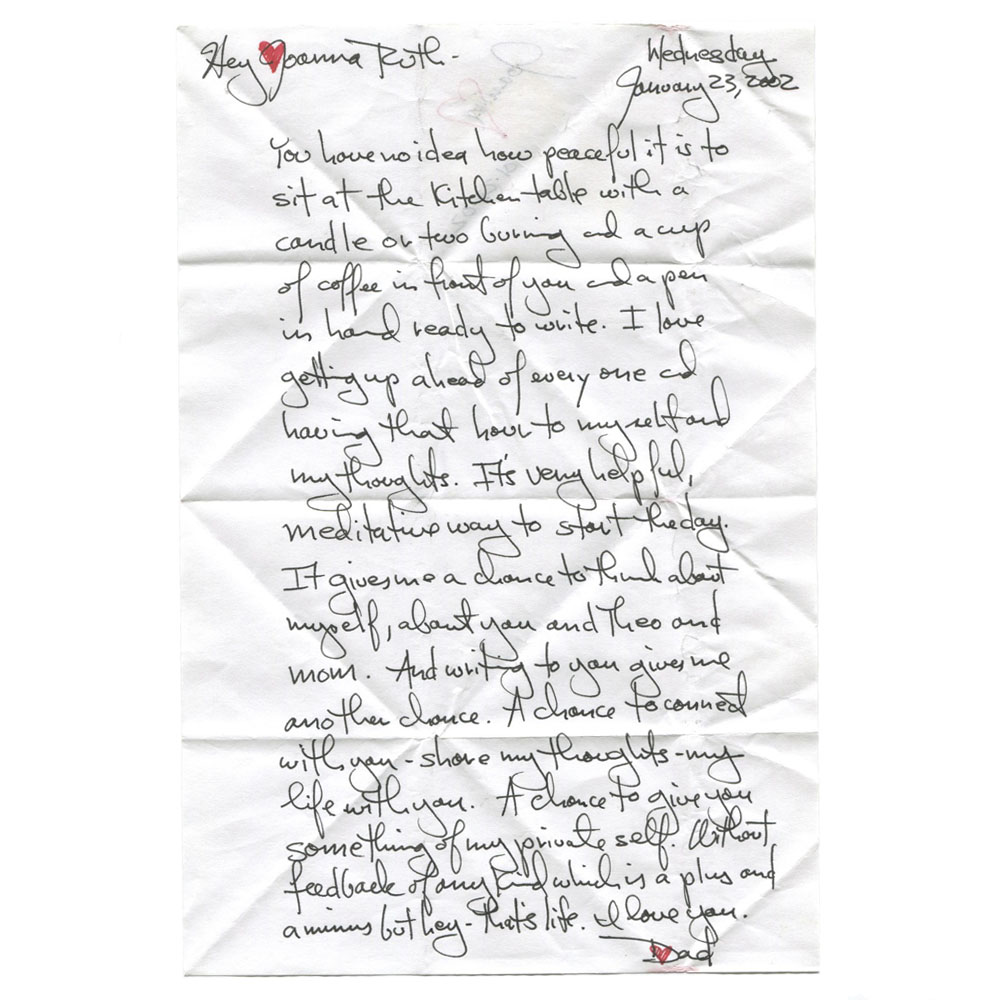 Hey Joanna Ruth -
Wednesday
January 23, 2002
You have no idea how peaceful it is to
sit at the kitchen table with a
candle or two burning and a cup
of coffee in front of you and a pen
in hand ready to write. I love
getting up ahead of every one and
having that hour to myself and
my thoughts. It's very helpful,
meditative way to start the day.
It gives me a chance to think about
myself, about you and Theo and
mom. And writing to you gives me
another chance. A chance to connect
with you - share my thoughts - my
life with you. A chance to give you
something of my private self. Without
feedback of any kind which is a plus and
a minus but hey - that's life. I love you.
Dad